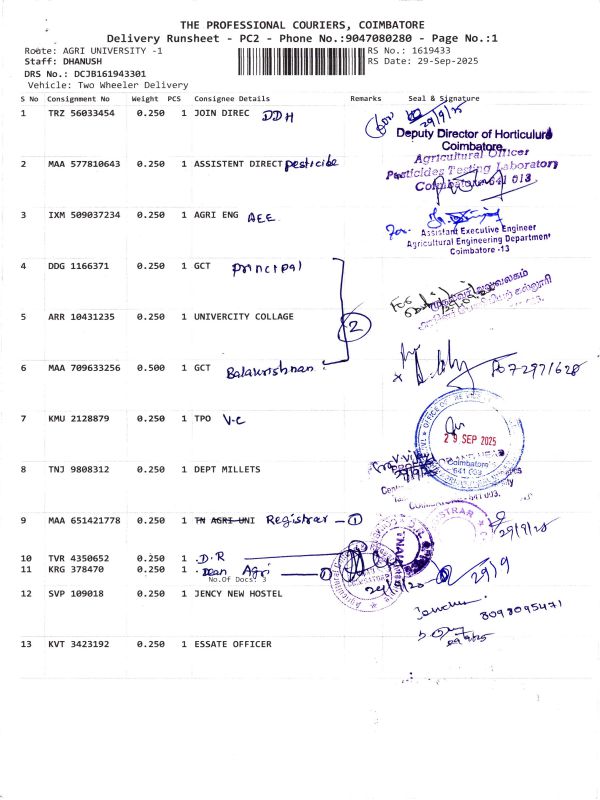 THE PROFESSIONAL COURIERS, COIMBATORE
Delivery Runsheet - PC2 - Phone No.:9047080280 - Page No.:1
Route: AGRI UNIVERSITY -1
RS No.: 1619433
Staff: DHANUSH
RS Date: 29-Sep-2025
DRS No.: DCJB161943301
Vehicle: Two Wheeler Delivery
S No Consignment No Weight PCS Consignee Details Remarks Seal & Signature
1 TRZ 56033454 0.250 1 JOIN DIREC DDH 29/9/25
Deputy Director of Horticulture
Coimbatore
2 MAA 577810643 0.250 1 ASSISTENT DIRECT pesticide
Agricultural Officer
Pesticides Testing Laboratory
Coimbatore-641 013
3 IXM 509037234 0.250 1 AGRI ENG AEE
For
Assistant Executive Engineer
Agricultural Engineering Department
Coimbatore -13
4 DDG 1166371 0.250 1 GCT principal
5 ARR 10431235 0.250 1 UNIVERCITY COLLAGE
2
6 MAA 709633256 0.500 1 GCT Balakrishnan
7 KMU 2128879 0.250 1 TPO V-C
29 SEP 2025
Coimbatore
641 003
8 TNJ 9808312 0.250 1 DEPT MILLETS
COIMBATORE - 641 003.
9 MAA 651421778 0.250 1 TN AGRI UNI Registrar - 1
29/9/25
10 TVR 4350652 0.250 1 D.R
11 KRG 378470 0.250 1 Dean Agri 1
No.Of Docs: 3
29/9
12 SVP 109018 0.250 1 JENCY NEW HOSTEL
8098095471
13 KVT 3423192 0.250 1 ESSATE OFFICER
29/9/25